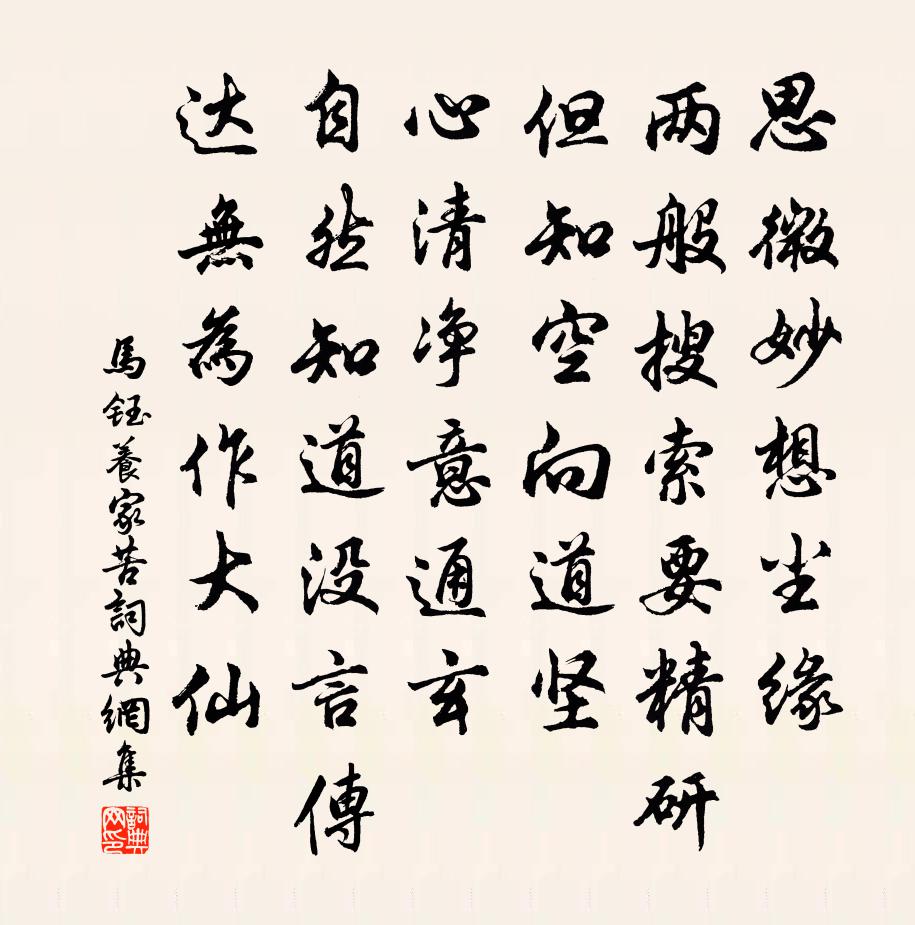 思微妙想尘缘
两般搜索要精研
但知空向道坚
心清净意通玄
自然知道没言傳
达無為作大仙
馬鈺養家苦詞典網集
詞典網印